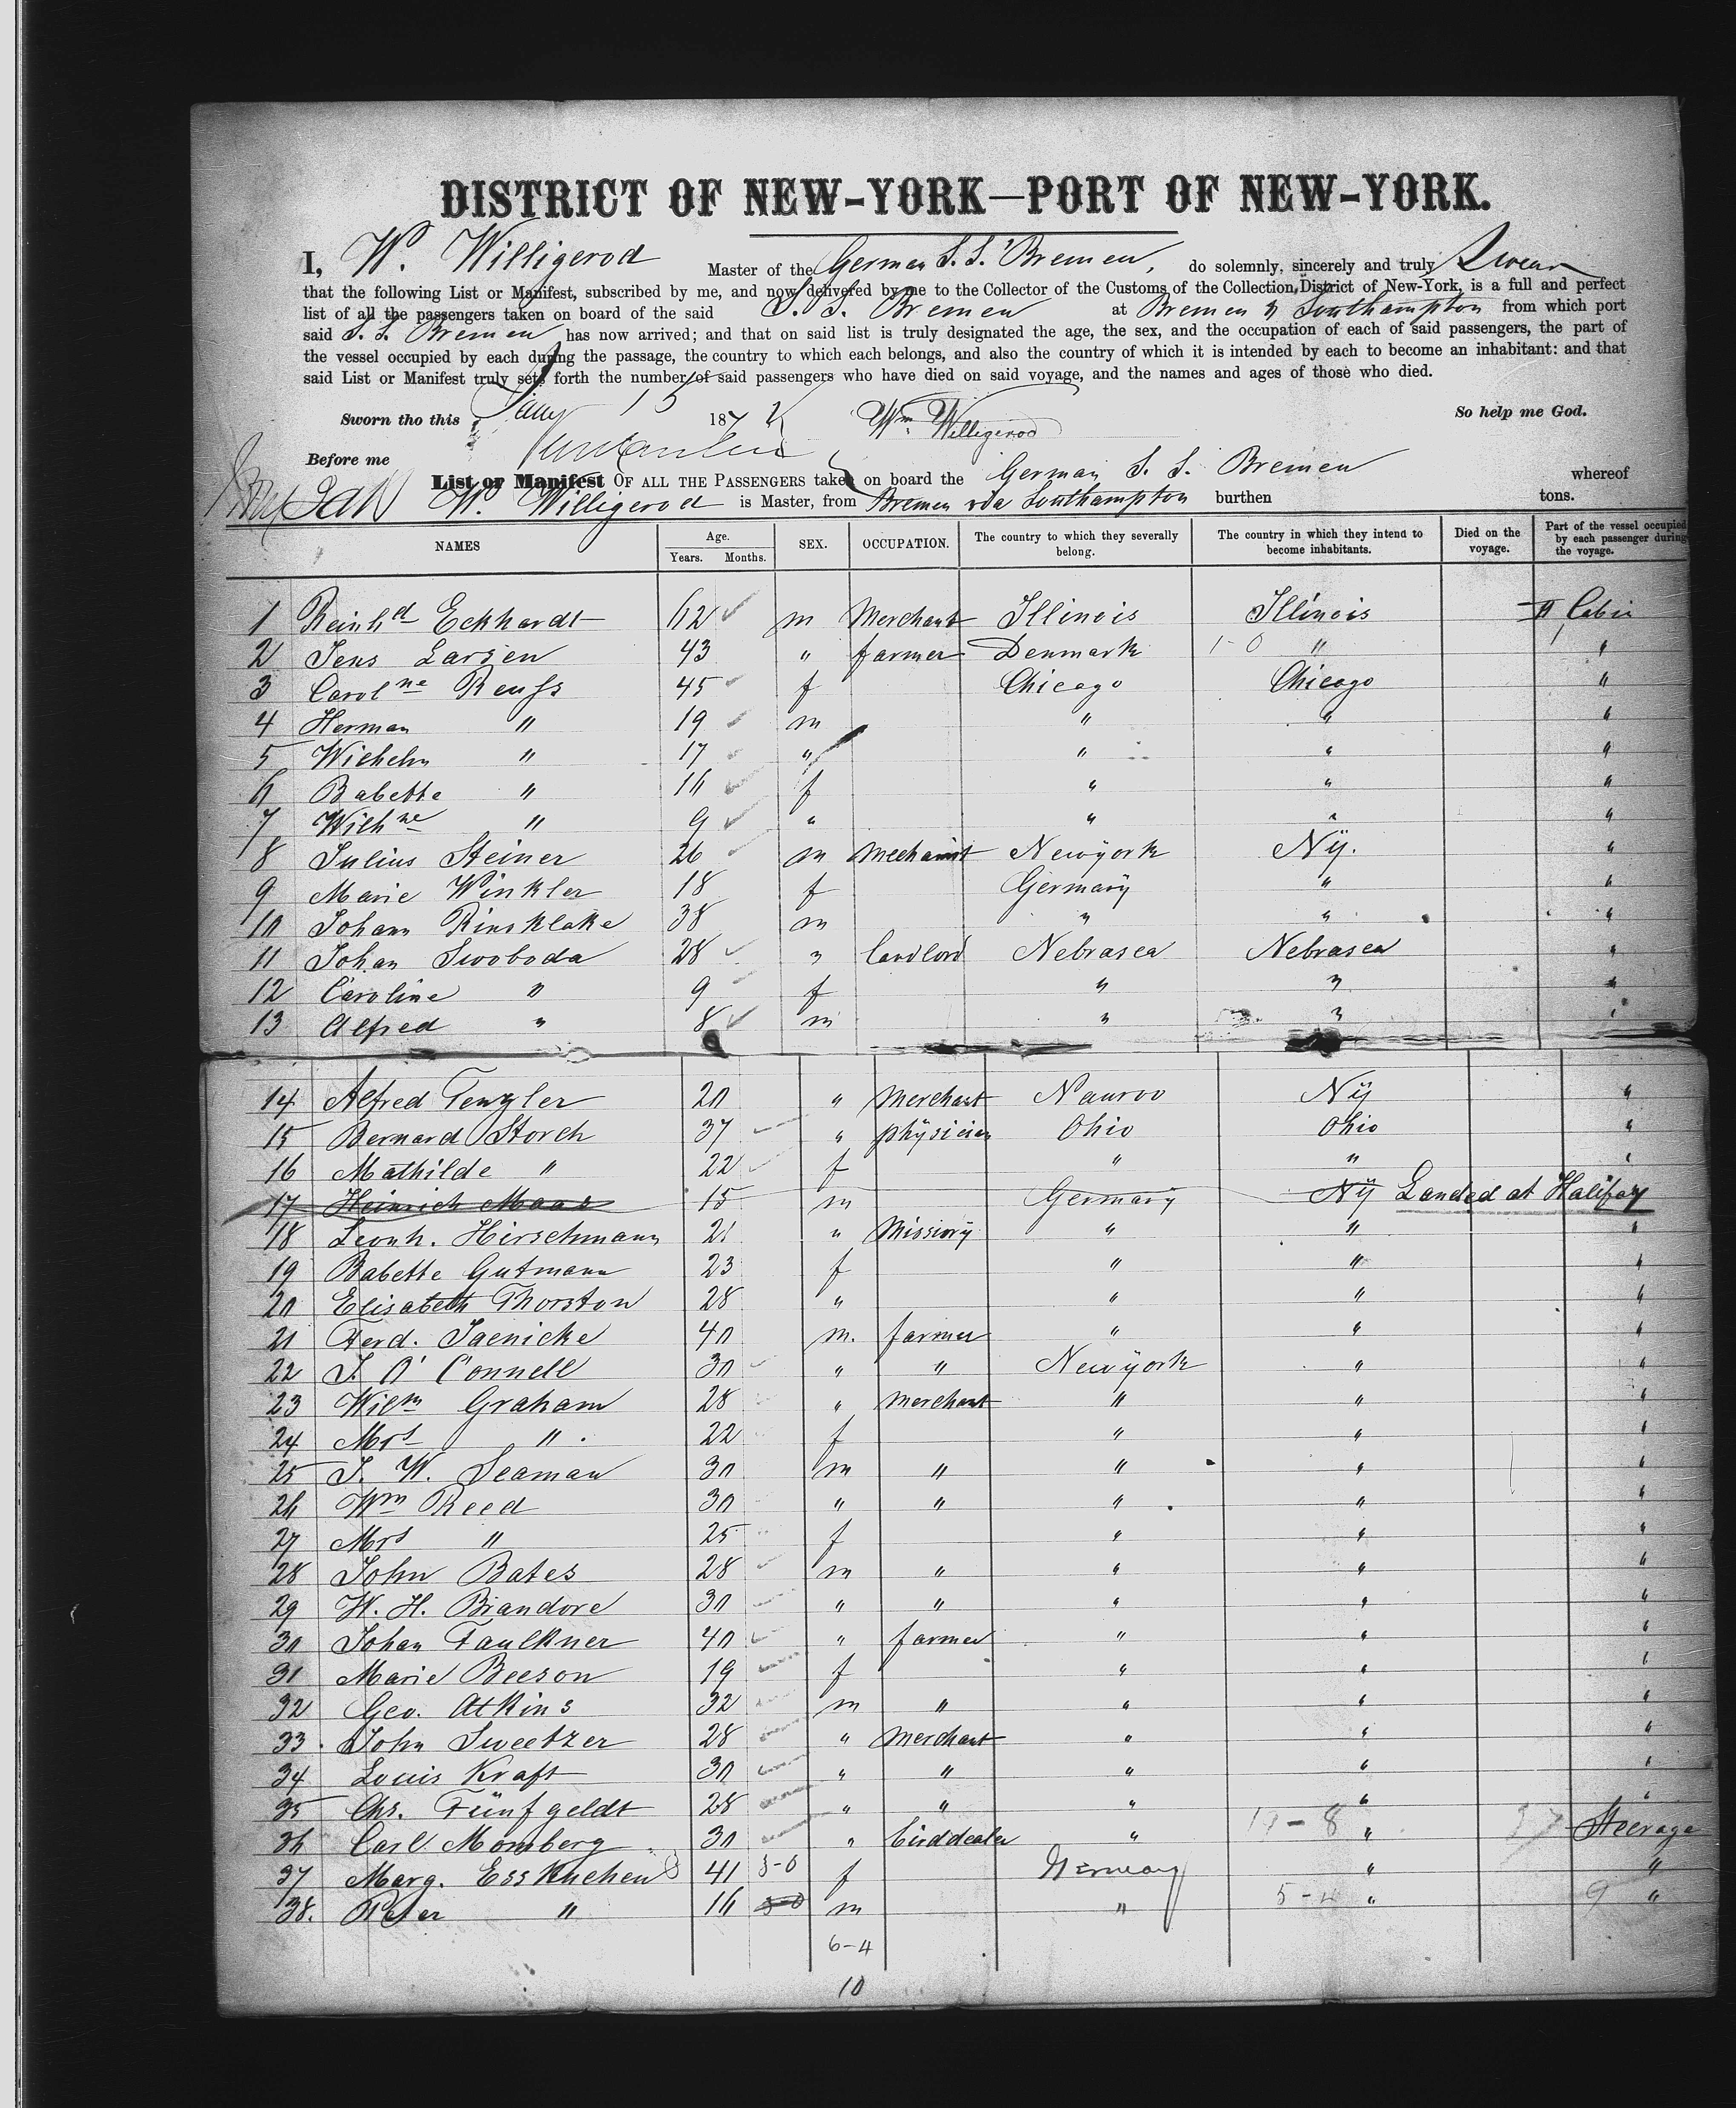 DISTRICT OF NEW-YORK—PORT OF NEW-YORK.
I, W. Willigerod Master of the German S. S. Bremen, do solemnly, sincerely and truly Swear
that the following List or Manifest, subscribed by me, and now delivered by me to the Collector of the Customs of the Collection District of New-York, is a full and perfect
list of all the passengers taken on board of the said S. S. Bremen at Bremen & Southampton from which port
said S. S. Bremen has now arrived; and that on said list is truly designated the age, the sex, and the occupation of each of said passengers, the part of
the vessel occupied by each during the passage, the country to which each belongs, and also the country of which it is intended by each to become an inhabitant: and that
said List or Manifest truly sets forth the number of said passengers who have died on said voyage, and the names and ages of those who died.
Sworn tho this Jany 15 187 Wm Willigerod So help me God.
Before me
List or Manifest OF ALL THE PASSENGERS taken on board the German S. S. Bremen whereof
W. Willigerod is Master, from Bremen via Southampton burthen tons.
NAMES Age. Years. Months. SEX. OCCUPATION. The country to which they severally belong. The country in which they intend to become inhabitants. Died on the voyage. Part of the vessel occupied by each passenger during the voyage.
1 Reinhd Eckhardt 62 m Merchant Illinois Illinois II Cabin
2 Jens Larsen 43 " farmer Denmark 1-0 " "
3 Carolne Reuss 45 f Chicago Chicago "
4 Herman " 19 m " " "
5 Wilhelm " 17 " " " "
6 Babette " 16 f " " "
7 Wilhne " 9 " " " "
8 Julius Steiner 26 m Mechanist Newyork Ny. "
9 Marie Winkler 18 f Germany " "
10 Johann Rinsklake 38 m " " "
11 Johan Swoboda 28 " landlord Nebrasca Nebrasca "
12 Caroline " 9 f " " "
13 Alfred " 8 m " " "
14 Alfred Tengler 20 " Merchant Nauvoo Ny "
15 Bernard Storch 37 " physician Ohio Ohio "
16 Mathilde " 22 f " " "
17 Heinrich Maas 15 m Germany Ny Landed at Halifax
18 Leonh. Hirschmann 21 " Missiony " " "
19 Babette Gutmann 23 f " " "
20 Elisabeth Thorston 28 " " " "
21 Ferd. Jaenicke 40 m. farmer " " "
22 J. O' Connell 30 " " Newyork " "
23 Wilm Graham 28 " merchant " " "
24 Mrs " 22 f " " "
25 J. W. Seaman 30 m " " " "
26 Wm Reed 30 " " " " "
27 Mrs " 25 f " " "
28 John Bates 28 m " " " "
29 W. H. Biandore 30 " " " " "
30 Johan Faulkner 40 " farmer " " "
31 Marie Beeson 19 f " " "
32 Geo. Atkins 32 m " " " "
33 John Sweetzer 28 " merchant " " "
34 Louis Kraft 30 " " " " "
35 Chs. Fünfgeldt 28 " " " " "
36 Carl Momberg 30 " birddealer " 19-8 " 37 Steerage
37 Marg. Esskuchen 41 3-0 f Germany " "
38. Peter " 16 3-0 m " 5-4 " 9 "
6-4
10